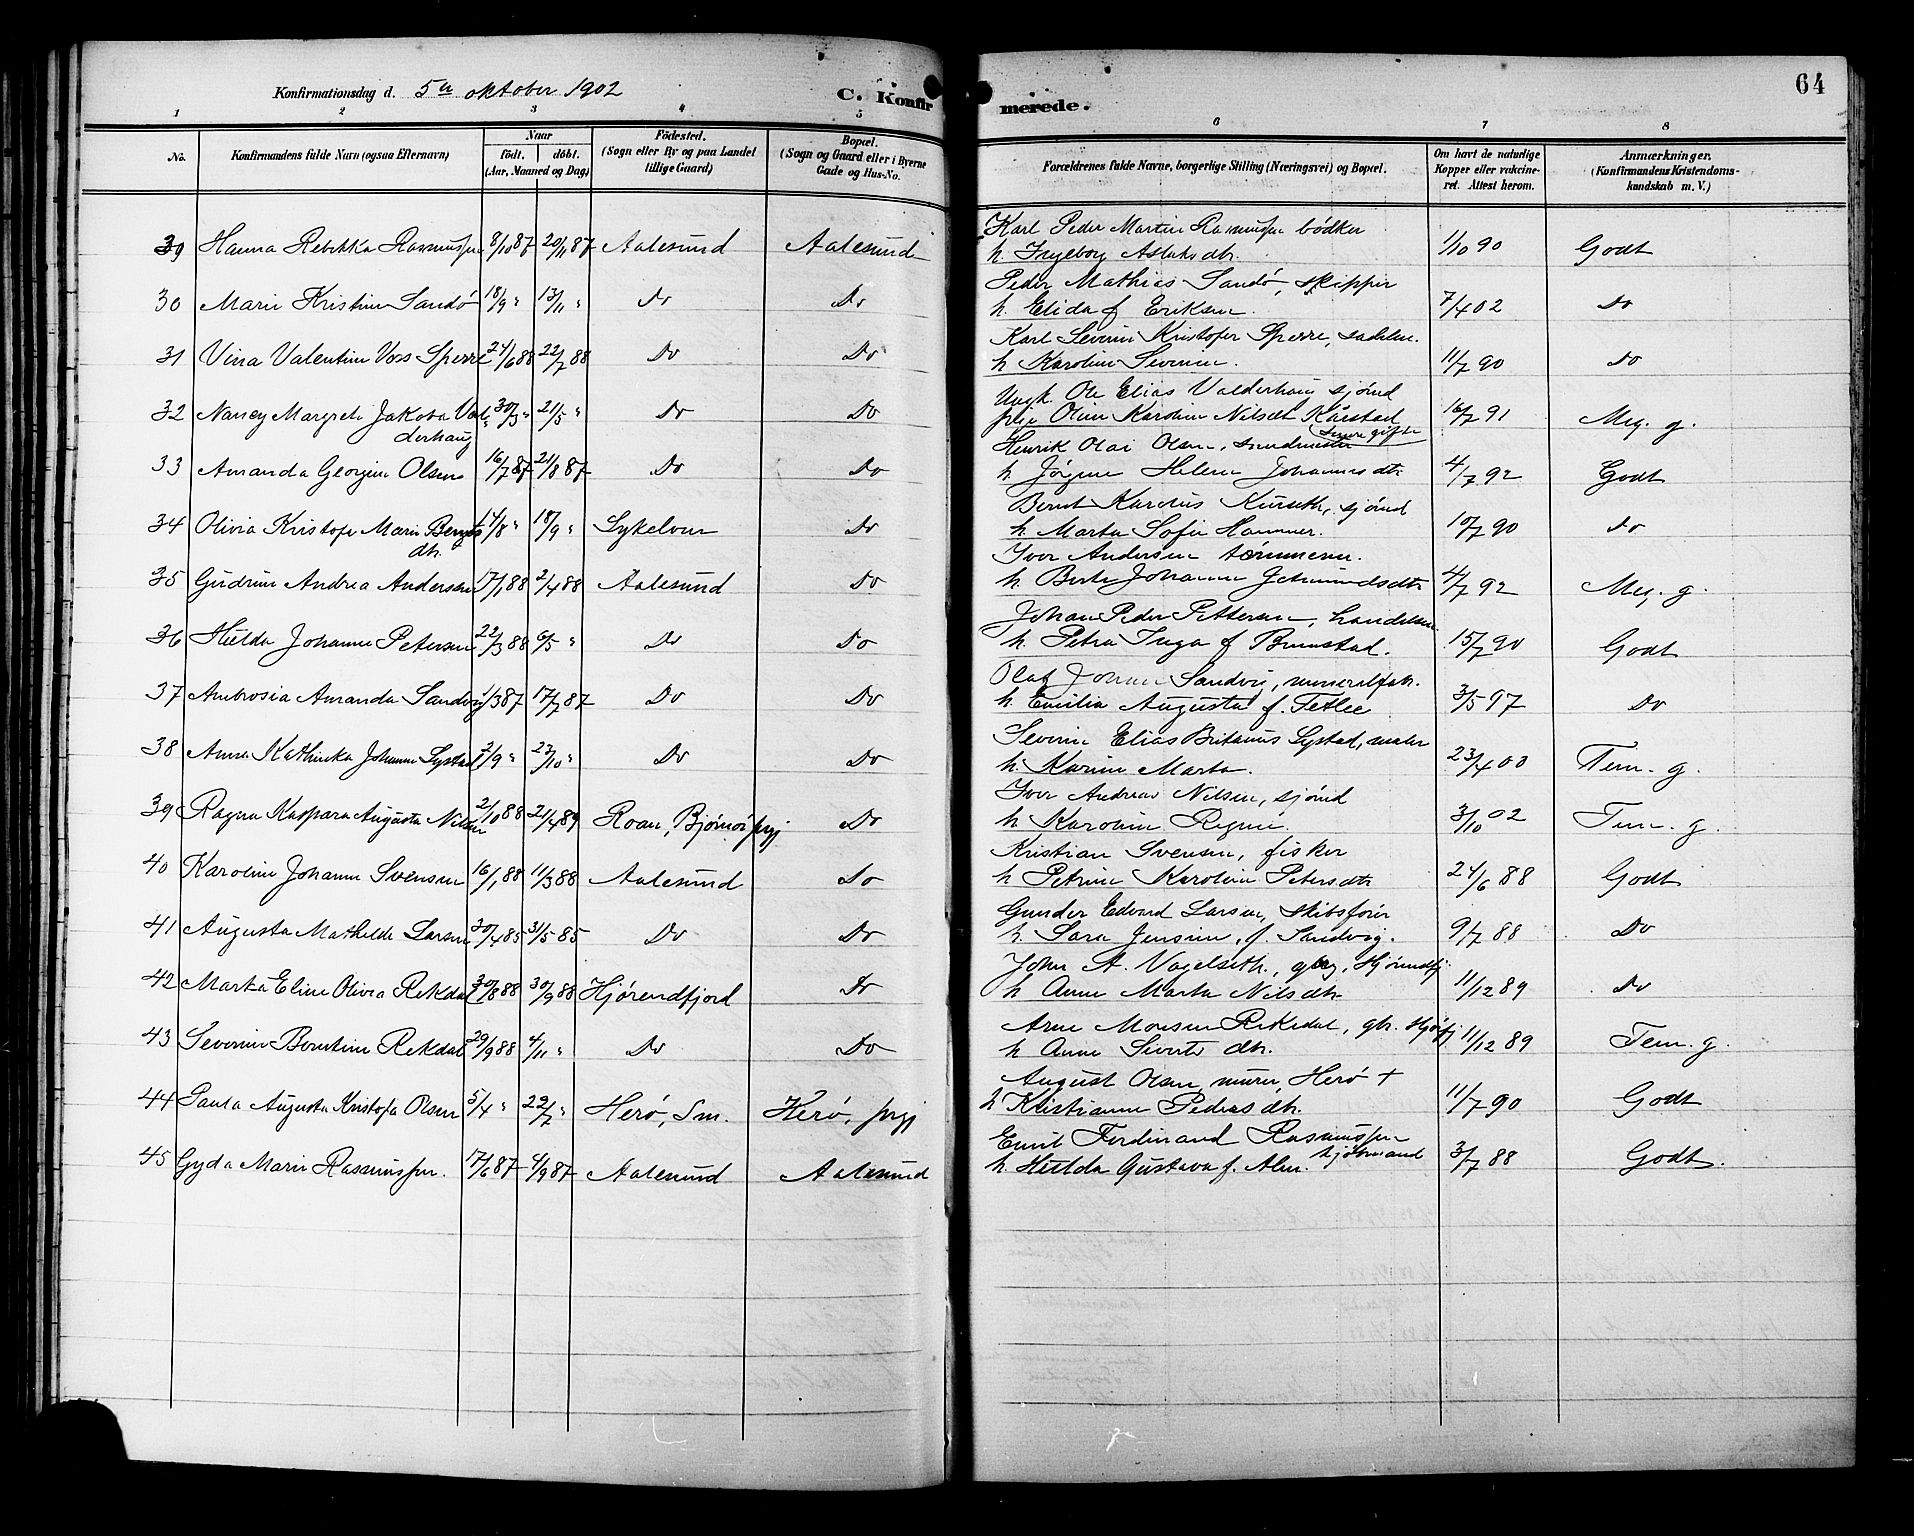 64
Konfirmationsdag d. 5te oktober 1902
C. Konfirmerede.
1 2 3 4 5 6 7 8
No.
Konfirmandens fulde Navn (ogsaa Efternavn)
Naar
födt. döbt.
(Aar, Maaned og Dag)
Födested.
(Sogn eller By og paa Landet
tillige Gaard)
Bopæl.
(Sogn og Gaard eller i Byerne
Gade og Hus-No.
Forældrenes fulde Navne, borgerlige Stilling (Næringsvei) og Bopæl.
Om havt de naturlige
Kopper eller vakcine-
ret. Attest herom.
Anmærkninger.
(Konfirmandens Kristendoms-
kundskab m. V.)
Karl Peder Martin Rasmussen bödker
39 Hanna Rebekka Rasmussen 8/10 87 20/11 87 Aalesund Aalesund h. Ingeborg Aslaksdtr. 1/10 90 Godt
Peder Mathias Sandö, skipper
30 Marie Kristine Sandö 18/9 " 13/11 " Do Do h. Elida f Eriksen. 7/4 02 Do
Karl Severin Kristofer Sperre,
31 Vina Valentine Voss Sperre 24/6 88 22/7 88 Do Do h Karoline Severine. 11/7 90 Do
Ungk. Ole Elias Valderhaug sjömd
32 Nancy Margrete Jakoba Val- 30/3 " 21/5 " Do Do pige Oline Karoline Nilsdtr Kaarstad 16/7 91 Meg. g.
derhaug
Henrik Olai Olsen,
33 Amanda Georgine Olsen 16/7 87 21/8 87 Do Do h Jörgine Helene Johannesdtr 4/7 92 Godt
Bernt Karolus Kurseth, sjömd
34 Olivia Kristofa Marie Bernts 14/8 " 18/9 " Sykelven Do h. Marta Sofie Hammer. 10/7 90 Do
dtr.
Iver Andersen tömmerm.
35 Gudrun Andrea Andersen 17/1 88 2/4 88 Aalesund Do h. Berte Johanne Jetmundsdtr 4/7 92 Meg. g.
Johan Peder Pettersen, handelsm.
36 Hulda Johanne Petersen 22/3 88 6/5 " Do Do h. Petra Inga f Brunstad. 15/7 90 Godt
Olaf Johan Sandvig, mineralfab.
37 Ambrosia Amanda Sandvig 1/3 87 17/7 87 Do Do h. Emilia Augusta f. Tetlee 3/5 97 Do
Severin Elias Britanus Systad, maler
38 Anna Kathinka Johanne Systad 2/9 " 23/10 " Do Do h. Karine Marta. 23/4 00 Tem. g.
Iver Andreas Nilsen, sjömd
39 Ragna Kaspara Augusta Nilsen 2/10 88 21/4 89 Roan, Bjørnör prgj Do h Karoline Regine. 3/10 02 Tem. g.
Kristian Svensen, fisker
40 Karoline Johanne Svensen 16/1 88 11/3 88 Aalesund Do h Petrine Karoline Petersdtr 24/6 88 Godt
Gunder Edvard Larsen, skibsförer
41 Augusta Mathilde Larsen 30/4 85 31/5 85 Do Do h. Sara Jensine, f. Sandvig. 9/7 88 Do
John A. Vogelseth, gbrg, Hjörundfj
42 Marta Eline Olivia Rekdal 30/8 88 30/9 88 Hjörendfjord Do h Anne Marta Nilsdtr 11/12 89 Do
Arne Monsen Rekedal, gbr. Hjörfj
43 Severine Berntine Rekdal 29/9 88 4/11 " Do Do h Anne Siverts dtr. 11/12 89 Tem. g.
August Olsen, murer, Herö +
44 Paula Augusta Kristofa Olsen 5/4 " 29/7 " Herö, Sm. Herö, prgj h Kristianne Pedersdtr. 11/7 90 Godt
Emil Ferdinand Rasmussen
45 Gyda Marie Rasmussen. 17/6 87 4/9 87 Aalesund Aalesund h. Hulda Gustava f. Alm. sjömand 3/7 88 Godt.